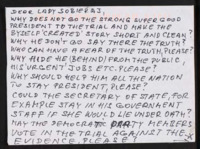 DEAR LADY SOBIERAJ,
WHY DOES NOT GO THE STRONG SUPER GOOD
PRESIDENT TO THE TRIAL AND MAKE THE
BY SELF 'CREATED' STORY SHORT AND CLEAN?
WHY HE DON'T GO SAY THERE THE TRUTH?
WHO CAN HAVE A FEAR OF THE TRUTH, PLEASE?
WHY HIDE HE (BEHIND) FROM THE PUBLIC /
HIS 'URGENT' JOBS ETC. PLEASE?
WHY SHOULD HELP HIM ALL THE NATION
TO STAY PRESIDENT, PLEASE?
COULD THE SECRETARY OF STATE, FOR
EXAMPLE STAY IN HIS GOVERNMENT
STAFF IF SHE WOULD LIE UNDER OATH?
MAY THE DEMOCRATIC PARTY MEMBERS
VOTE IN THE TRIAL AGAINST THE
EVIDENCE, PLEASE?